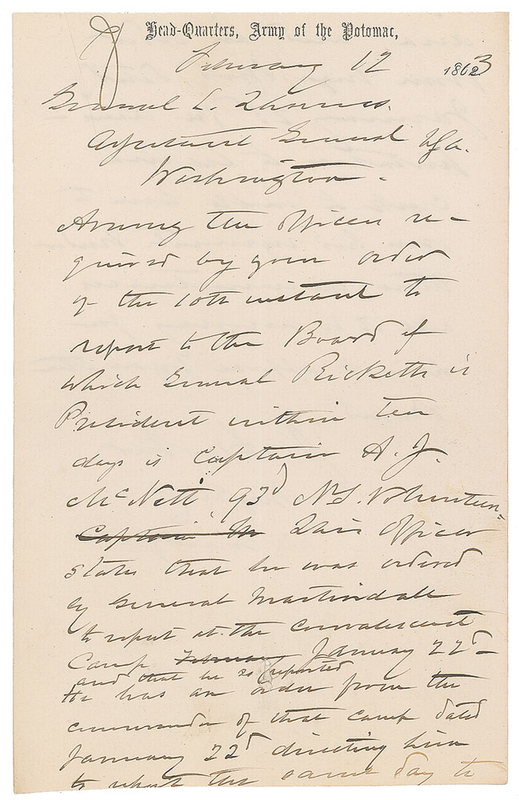 Head-Quarters, Army of the Potomac,
February 12 1863
General L. Thomas.
Adjutant General USA.
Washington.
Among the officers re-
quired by your order
of the 10th instant to
report to the Board of
which General Ricketts is
President within ten
days is Captain A. J.
McNett 93d N.Y. Volunteers
Captain Mc This Officer
states that he was ordered
by General Martindale
to report at the convalescent
Camp February January 22d
and that he so reported
He has an order from the
commander of that camp dated
January 22d directing him
to report the same day to